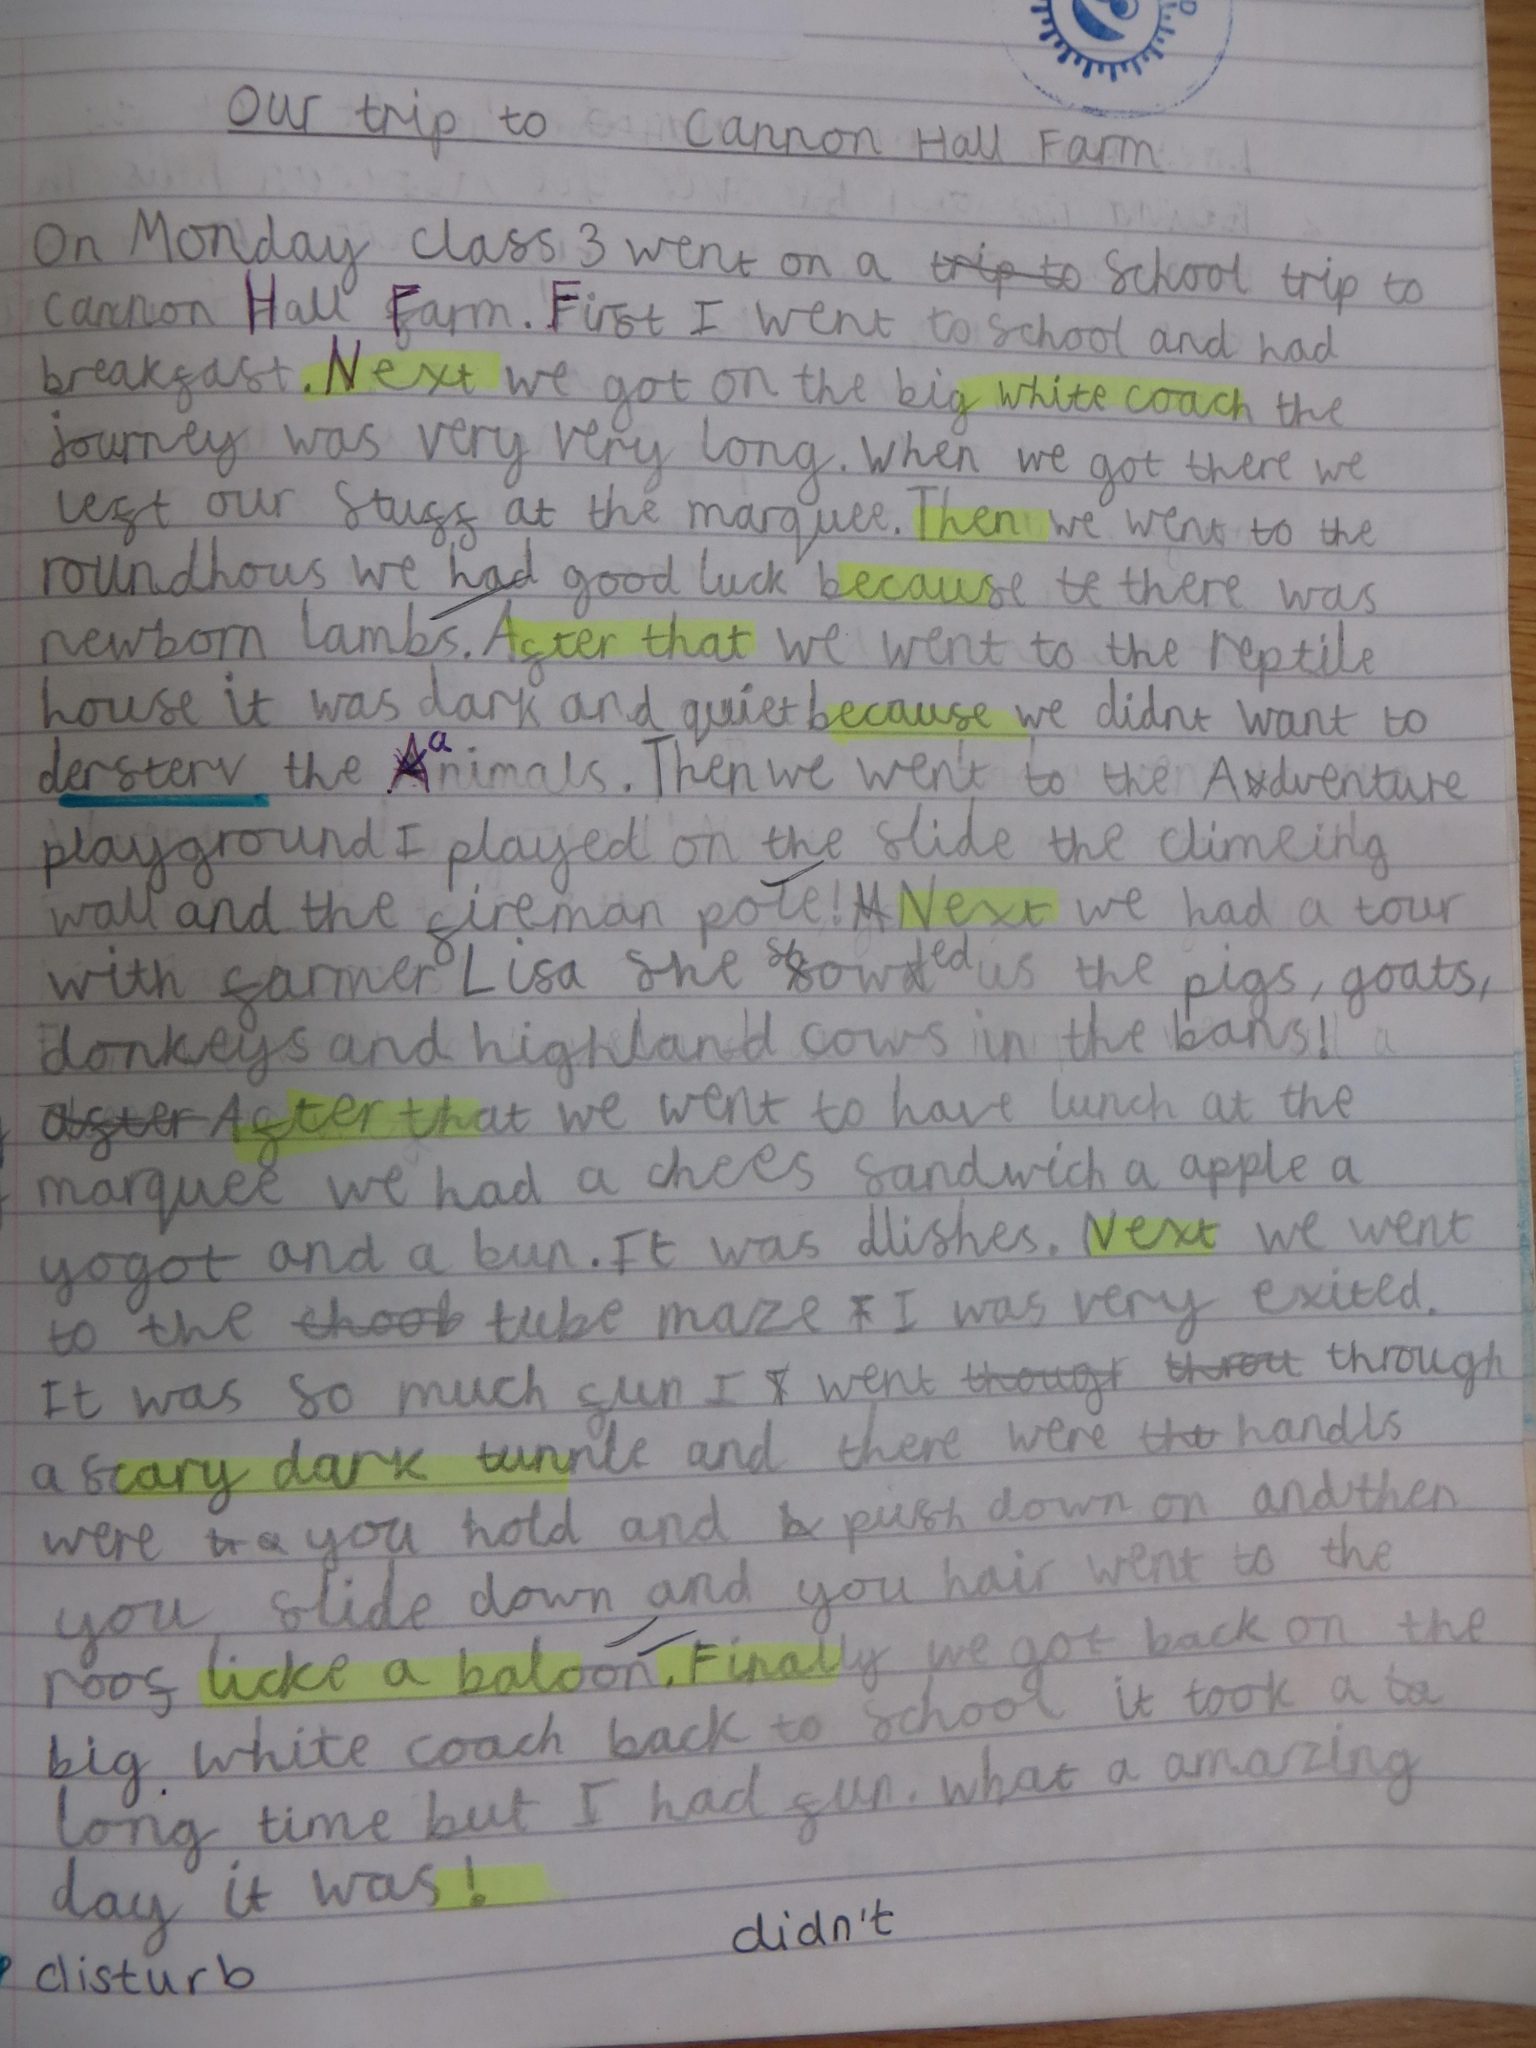 Our trip to Cannon Hall Farm
On Monday class 3 went on a trip to School trip to
Cannon Hall Farm. First I went to school and had
breakfast. Next we got on the big white coach the
journey was very very long. When we got there we
left our stuff at the marquee. Then we went to the
roundhous we had good luck because te there was
newborn lambs. After that we went to the reptile
house it was dark and quiet because we didnt want to
dersterv the animals. Then we went to the Adventure
playground I played on the slide the climeing
wall and the fireman pole! Next we had a tour
with farmer Lisa she showded us the pigs, goats,
donkeys and highland cows in the bans!
after After that we went to have lunch at the
marquee we had a chees sandwich a apple a
yogot and a bun. It was dlishes. Next we went
to the thoob tube maze I was very exited.
It was so much fun I went thougt throu through
a scary dark tunnle and there were tht handls
were you hold and push down on and then
you slide down and you hair went to the
roof licke a baloon. Finally we got back on the
big white coach back to school it took a ta
long time but I had fun. what a amazing
day it was!
didn't
disturb